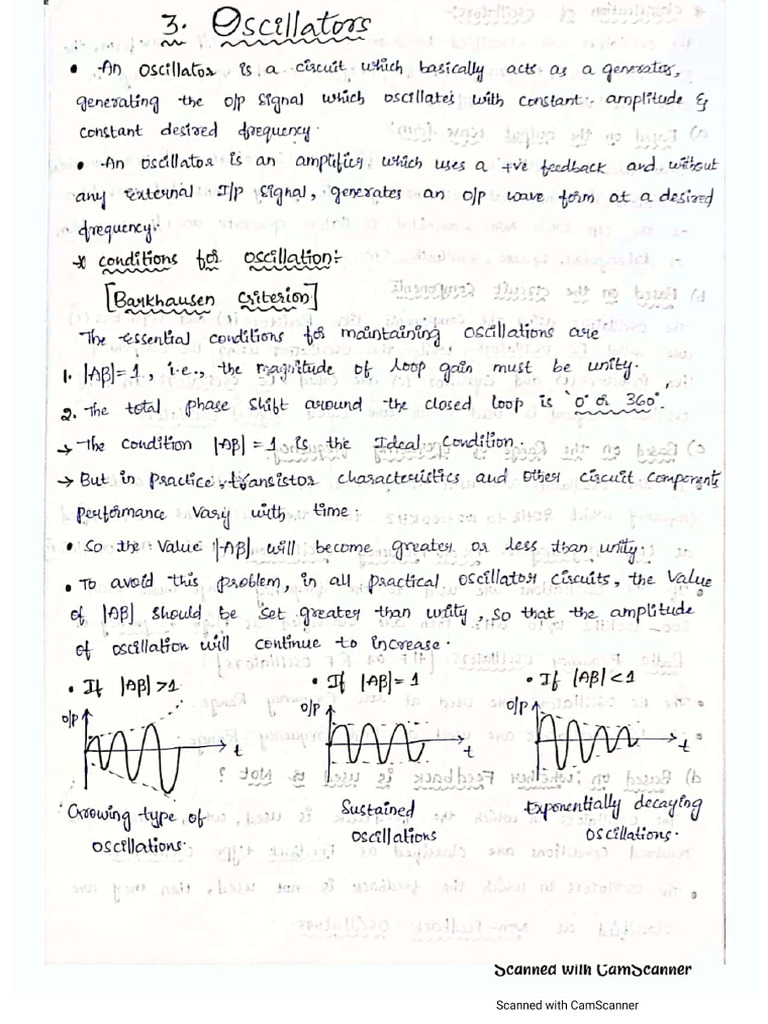 3. Oscillators
• An oscillator is a circuit which basically acts as a generator,
generating the o/p signal which oscillates with constant amplitude &
constant desired frequency.
• An oscillator is an amplifier, which uses a +ve feedback and without
any external I/p signal, generates an o/p wave form at a desired
frequency.
* conditions for oscillation:-
[Barkhausen Criterion]
The essential conditions for maintaining oscillations are
1. |Aβ|=1, i.e., the magnitude of loop gain must be unity.
2. The total phase shift around the closed loop is '0° or 360°.
→ The condition |Aβ|=1 is the Ideal Condition.
→ But in practice, transistor characteristics and other circuit components
performance vary with time.
• So the value |Aβ| will become greater or less than unity.
• To avoid this problem, in all practical oscillator circuits, the value
of |Aβ| should be set greater than unity, so that the amplitude
of oscillation will continue to increase.
• If |Aβ|>1 • If |Aβ|=1 • If |Aβ|<1
o/p t o/p t o/p t
Growing type of Sustained Exponentially decaying
oscillations. oscillations oscillations.
Scanned with CamScanner
Scanned with CamScanner